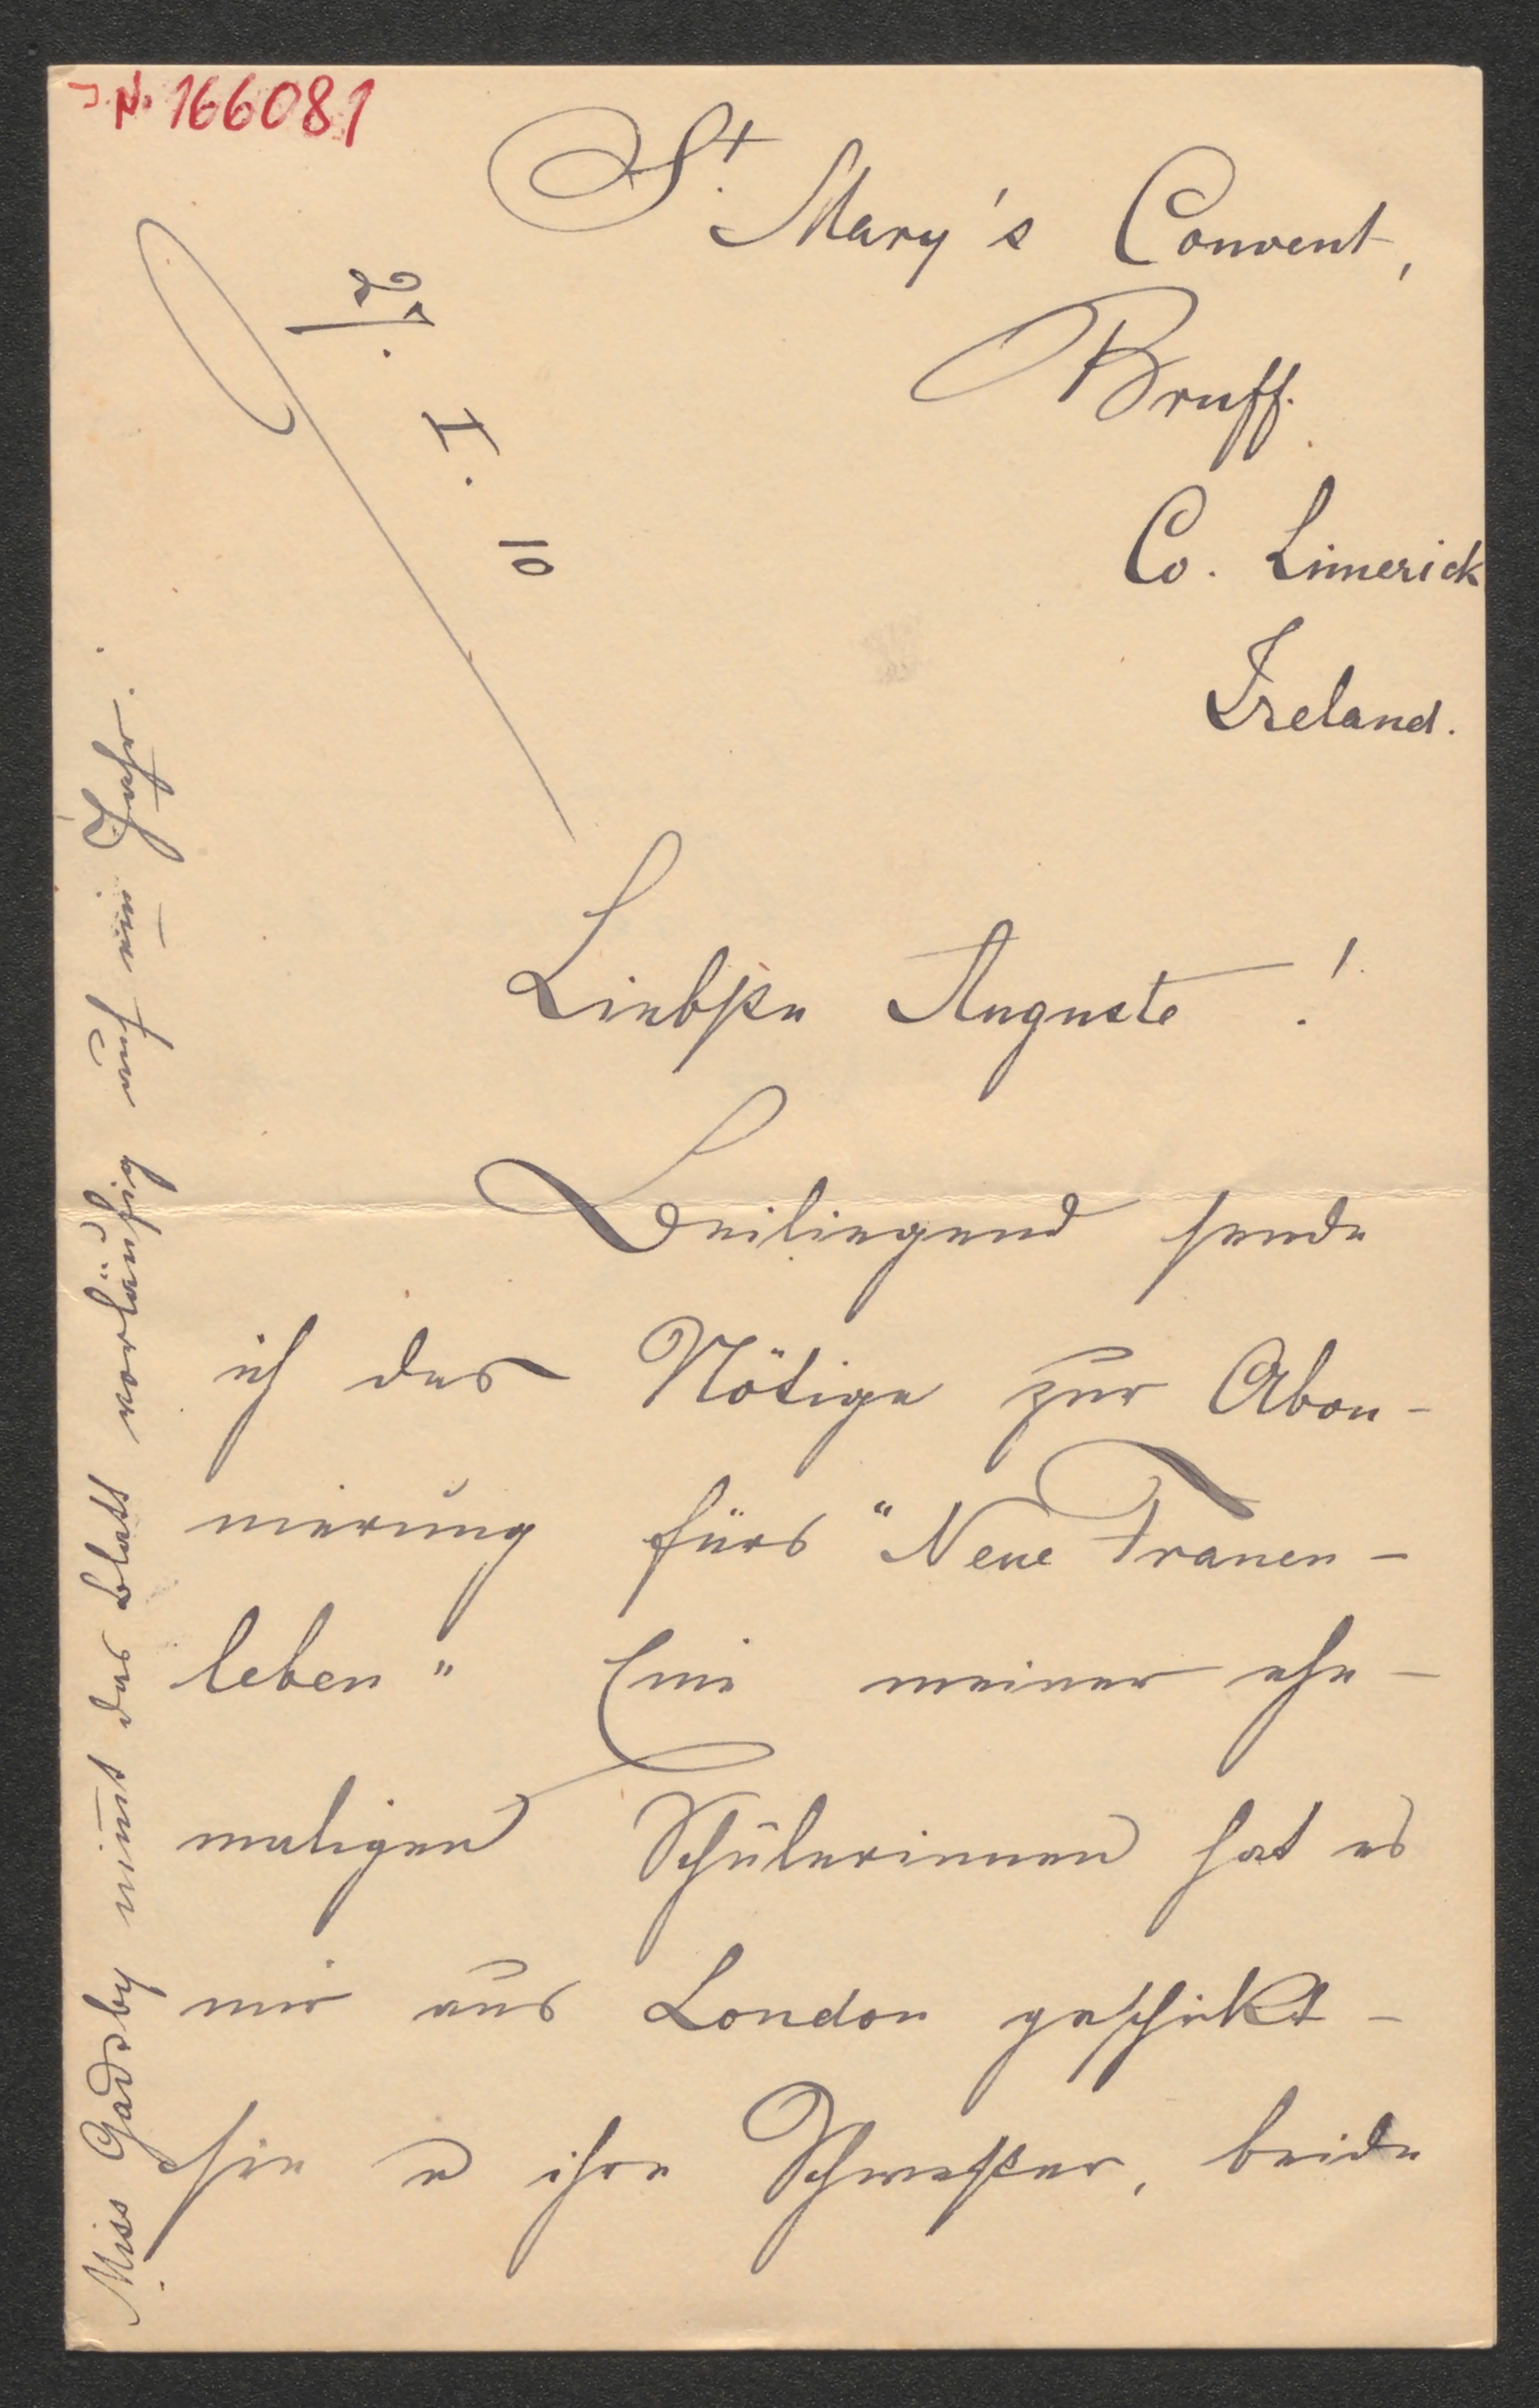 J.N. 166081
St. Mary's Convent,
Bruff.
Co. Limerick
Ireland.
I. 10
Liebste Auguste!
Beiliegend sende
ich das Nötige zur Abon-
nierung fürs "Neue Frauen-
leben" Eine meiner ehe-
maligen Schülerinnen hat es
mir aus London geschickt -
sie u ihre Schwester, beide
Miss Gadsby nim̄t das Blatt vorläufig auf ein Jahr.